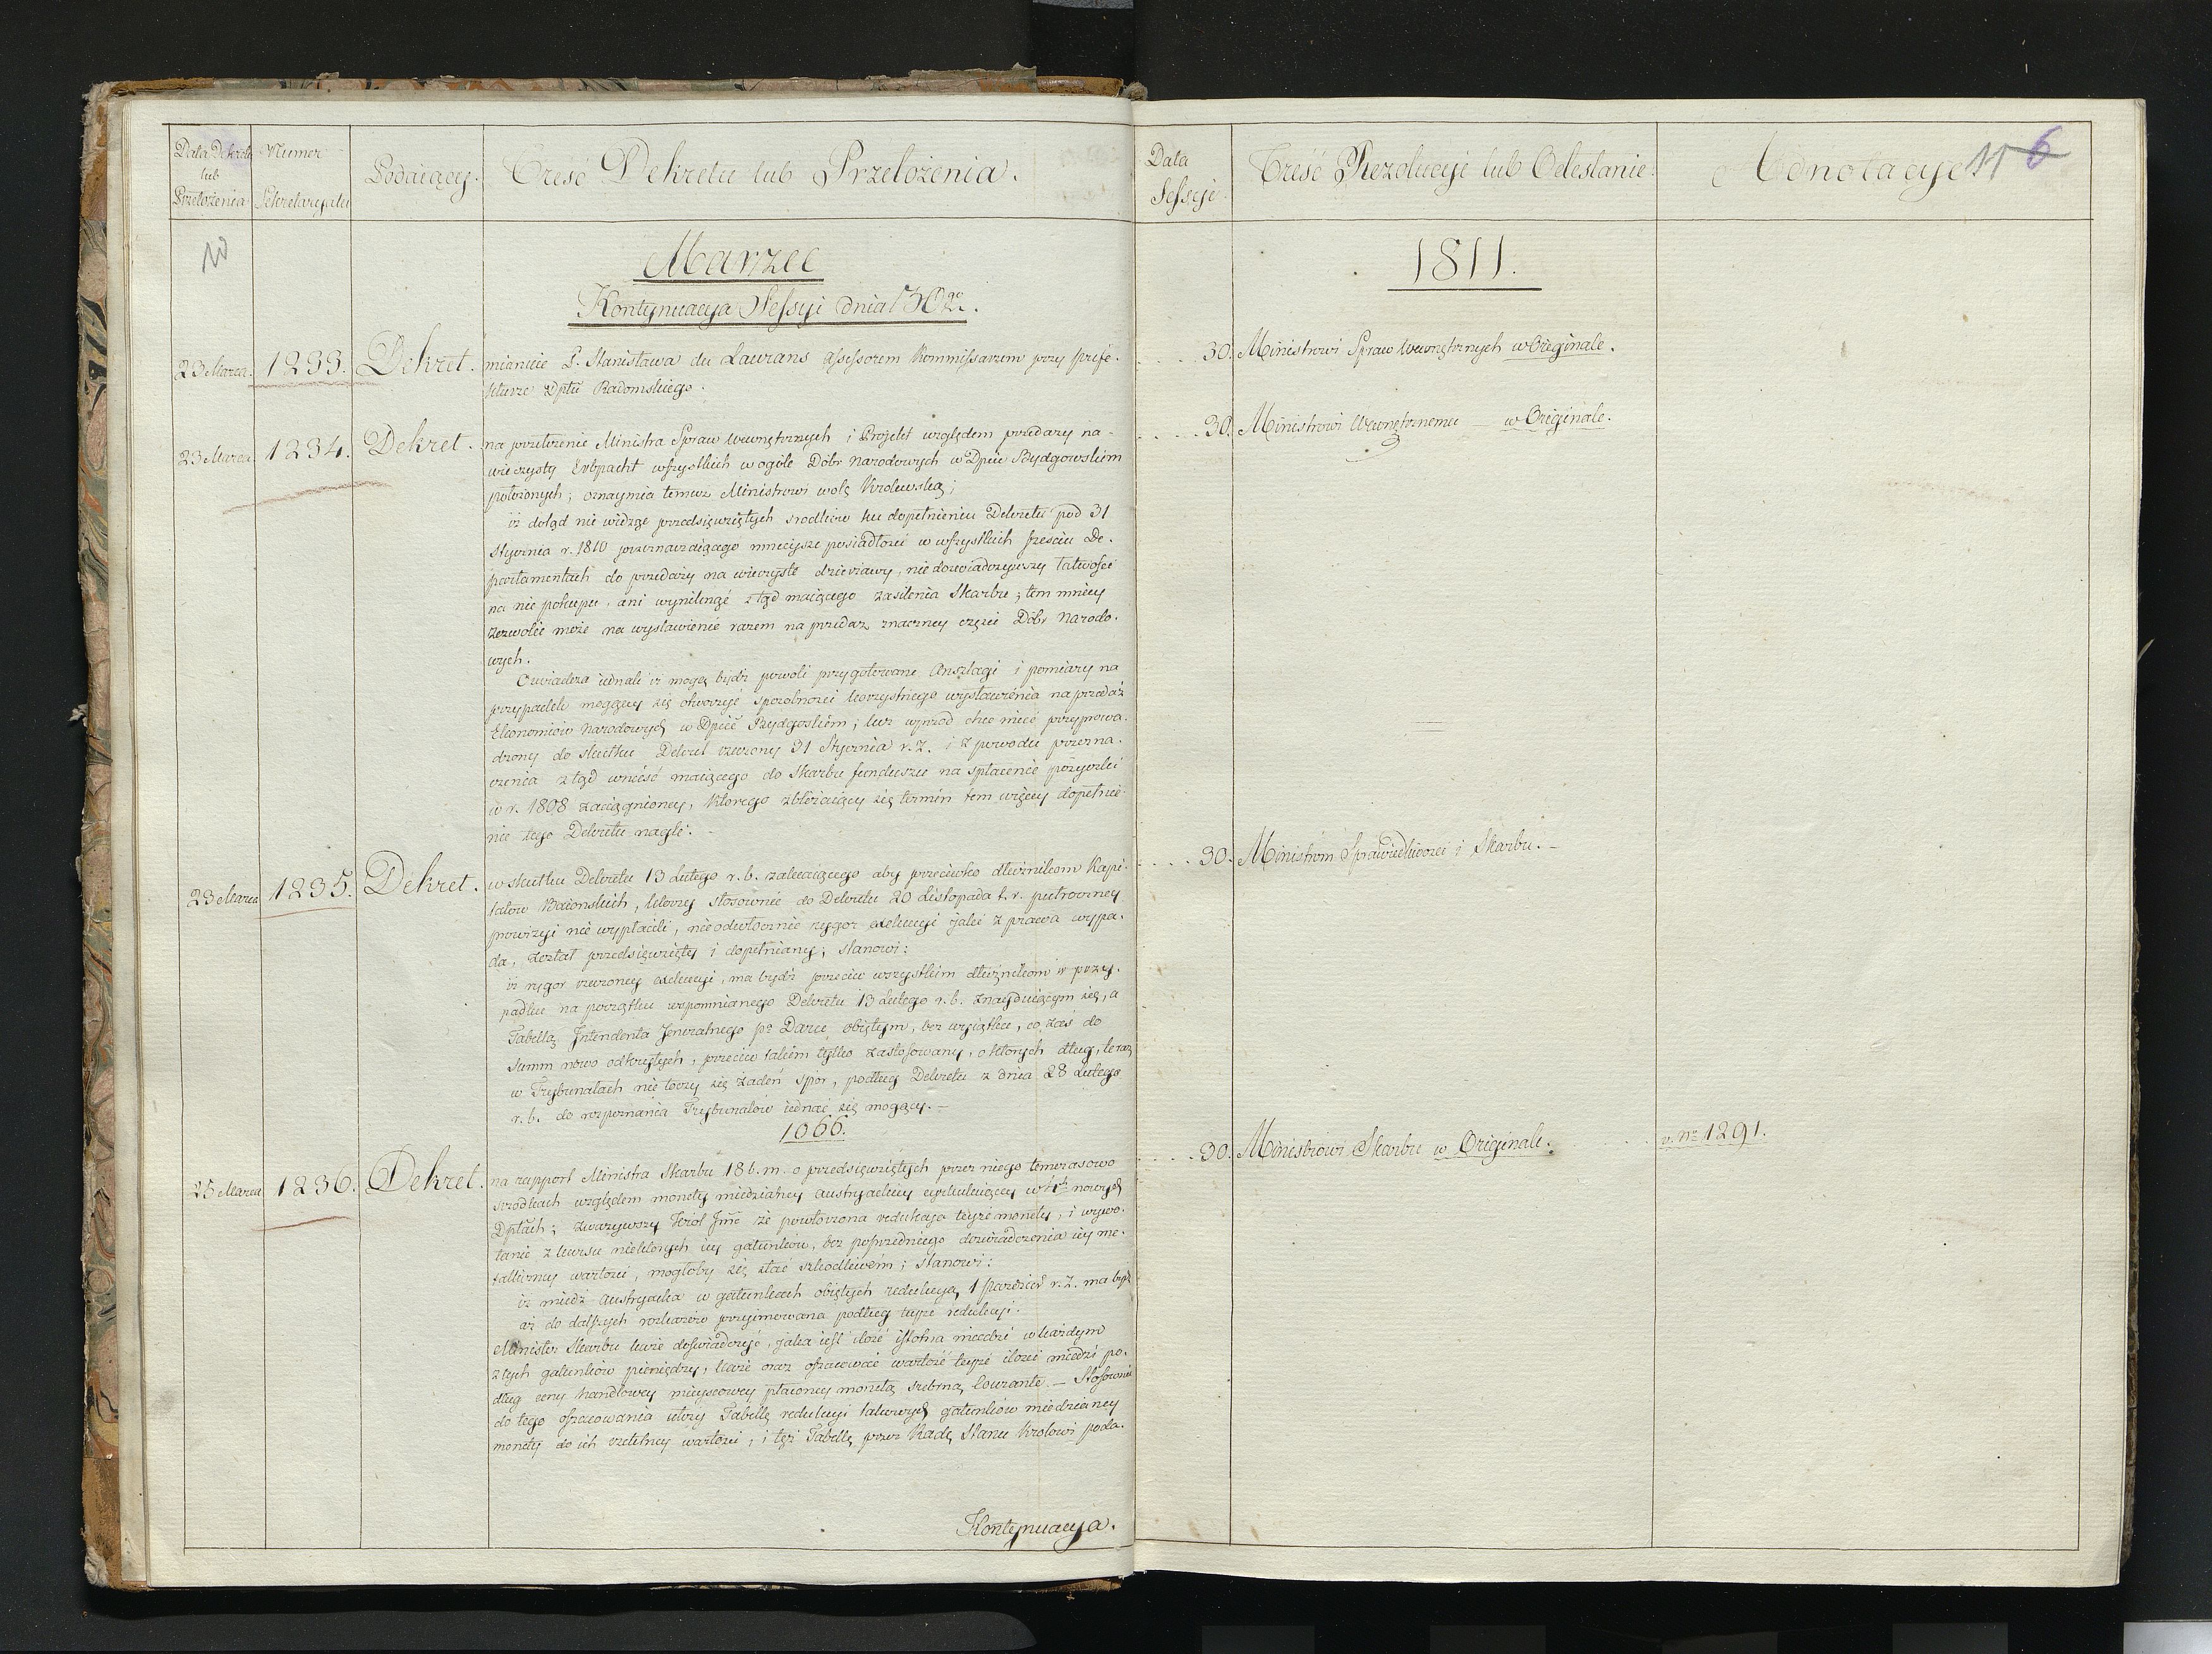 Data Dekretu
lub
Przełożenia
Numer
Sekretaryatu
Podaiący.
Treść Dekretu lub Przełożenia.
Data
Sessyi
Treść Rezolucyi lub Odesłanie.
Adnotacye
11 6
10
Marzec
1811.
Kontynuacya Sessyi dnia 30go.
23 Marca. 1233. Dekret. mianuie P. Stanisława du Laurans assessorem Kommissarzem przy prefe-
kturze Dptu Radomskiego.
30. Ministrowi Spraw wewnętrznych w Originale.
23 Marca. 1234. Dekret. na przełożenie Ministra Spraw wewnętrznych i Projekt względem przedaży na-
wieczysty Erbpacht wszystkich w ogóle Dóbr Narodowych w Dpcie Bydgowskim
położonych; oznaymia temuż Ministrowi wolę Krolewską;
iż dotąd nie widząc przedsięwziętych srodków ku dopełnieniu Dekretu pod 31
Stycznia r. 1810 przeznaczaiącego mnieysze posiadłości w wszystkich sześciu De-
partamentach do przedaży na wieczyste dzierżawy, nie doswiadczywszy łatwości
na nie pokupu, ani wyniknąć ztąd maiącego zasilenia Skarbu; tem mniey
zezwolić może na wystawienie razem na przedaż znaczney części Dóbr Narodo-
wych.
Oswiadcza iednak iż mogą bydź powoli przygotowane Anszlagi i pomiary na
przypadek mogącey się otworzyć sposobności korzystnego wystawienia na przedaż
Ekonomiów Narodowych w Dpcie Bydgoskim; lecz wprzód chce mieć przyprowa-
dzony do skutku Dekret rzeczony 31 Stycznia r. z. i z powodu przezna-
czenia ztąd wnieść maiącego do Skarbu funduszu na spłacenie pożyczki
w r. 1808 zaciągnioney, którego zbliżaiący się termin tem więcey dopełnie-
nie tego Dekretu nagle.
30. Ministrowi Wewnętrznemu — w Originale.
23 Marca 1235. Dekret. w skutku Dekretu 13 Lutego r. b. zalecaiącego aby przeciwko dłużnikom Kapi-
tałow Baionskich, którzy stosownie do Dekretu 20 Listopada r. połroczney
prowizyi nie wypłacili, nieodwłocznie rygor exekucyi jaki z prawa wypa-
da, został przedsięwzięty i dopełniany; stanowi:
iż rygor rzeczoney exekucyi, ma bydź przeciw wszystkim dłużnikom w przy-
padku na początku wspomnianego Dekretu 13 Lutego r. b. znayduiącym się, a
Tabellą Intendenta Jeneralnego po Daru obiętym, bez wyiątku, co zaś do
Summ nowo odkrytych, przeciw takim tylko zastosowany, o których dług, teraz
w Trybunałach nie toczy się żaden spor, podług Dekretu z dnia 28 Lutego
r. b. do rozpoznania Trybunałów iednać się mogący. —
1066.
30. Ministrom Sprawiedliwości i Skarbu. —
25 Marca 1236. Dekret. na rapport Ministra Skarbu 18 b. m. o przedsięwziętych przez niego temczasowo
srzodkach względem monety miedzianey austryackiey cyrkuluiącey w 4ch nowych
Dptach; zważywszy Król Jmć że powtorzona redukcya teyże monety, i wywo-
łanie z kursu niektorych iey gatunków, bez poprzedniego doswiadczenia iey me-
talliczney wartości, mogłoby się stać szkodliwém; stanowi:
iż miedź austryacka w gatunkach obiętych redukcyą 1 Pazdzier r. z. ma bydź
aż do dalszych rozkazów przyjmowana podług teyże redukcyi.
Minister Skarbu każe doswiadczyć, jaka iest ilość istotna miedzi w każdym
z tych gatunków pieniędzy, każe oraz oszacować wartość teyże ilości miedzi po-
dług ceny handlowey mieyscowey płaconey monetą srebrną kourante. — Stosownie
do tego oszacowania ułoży Tabellę redukcyi takowych gatunków miedzianey
monety do ich rzetelney wartości, i tęż Tabellę przez Radę Stanu Krolowi poda.
30. Ministrowi Skarbu w Originale.
v. No 1291.
Kontynuacya.